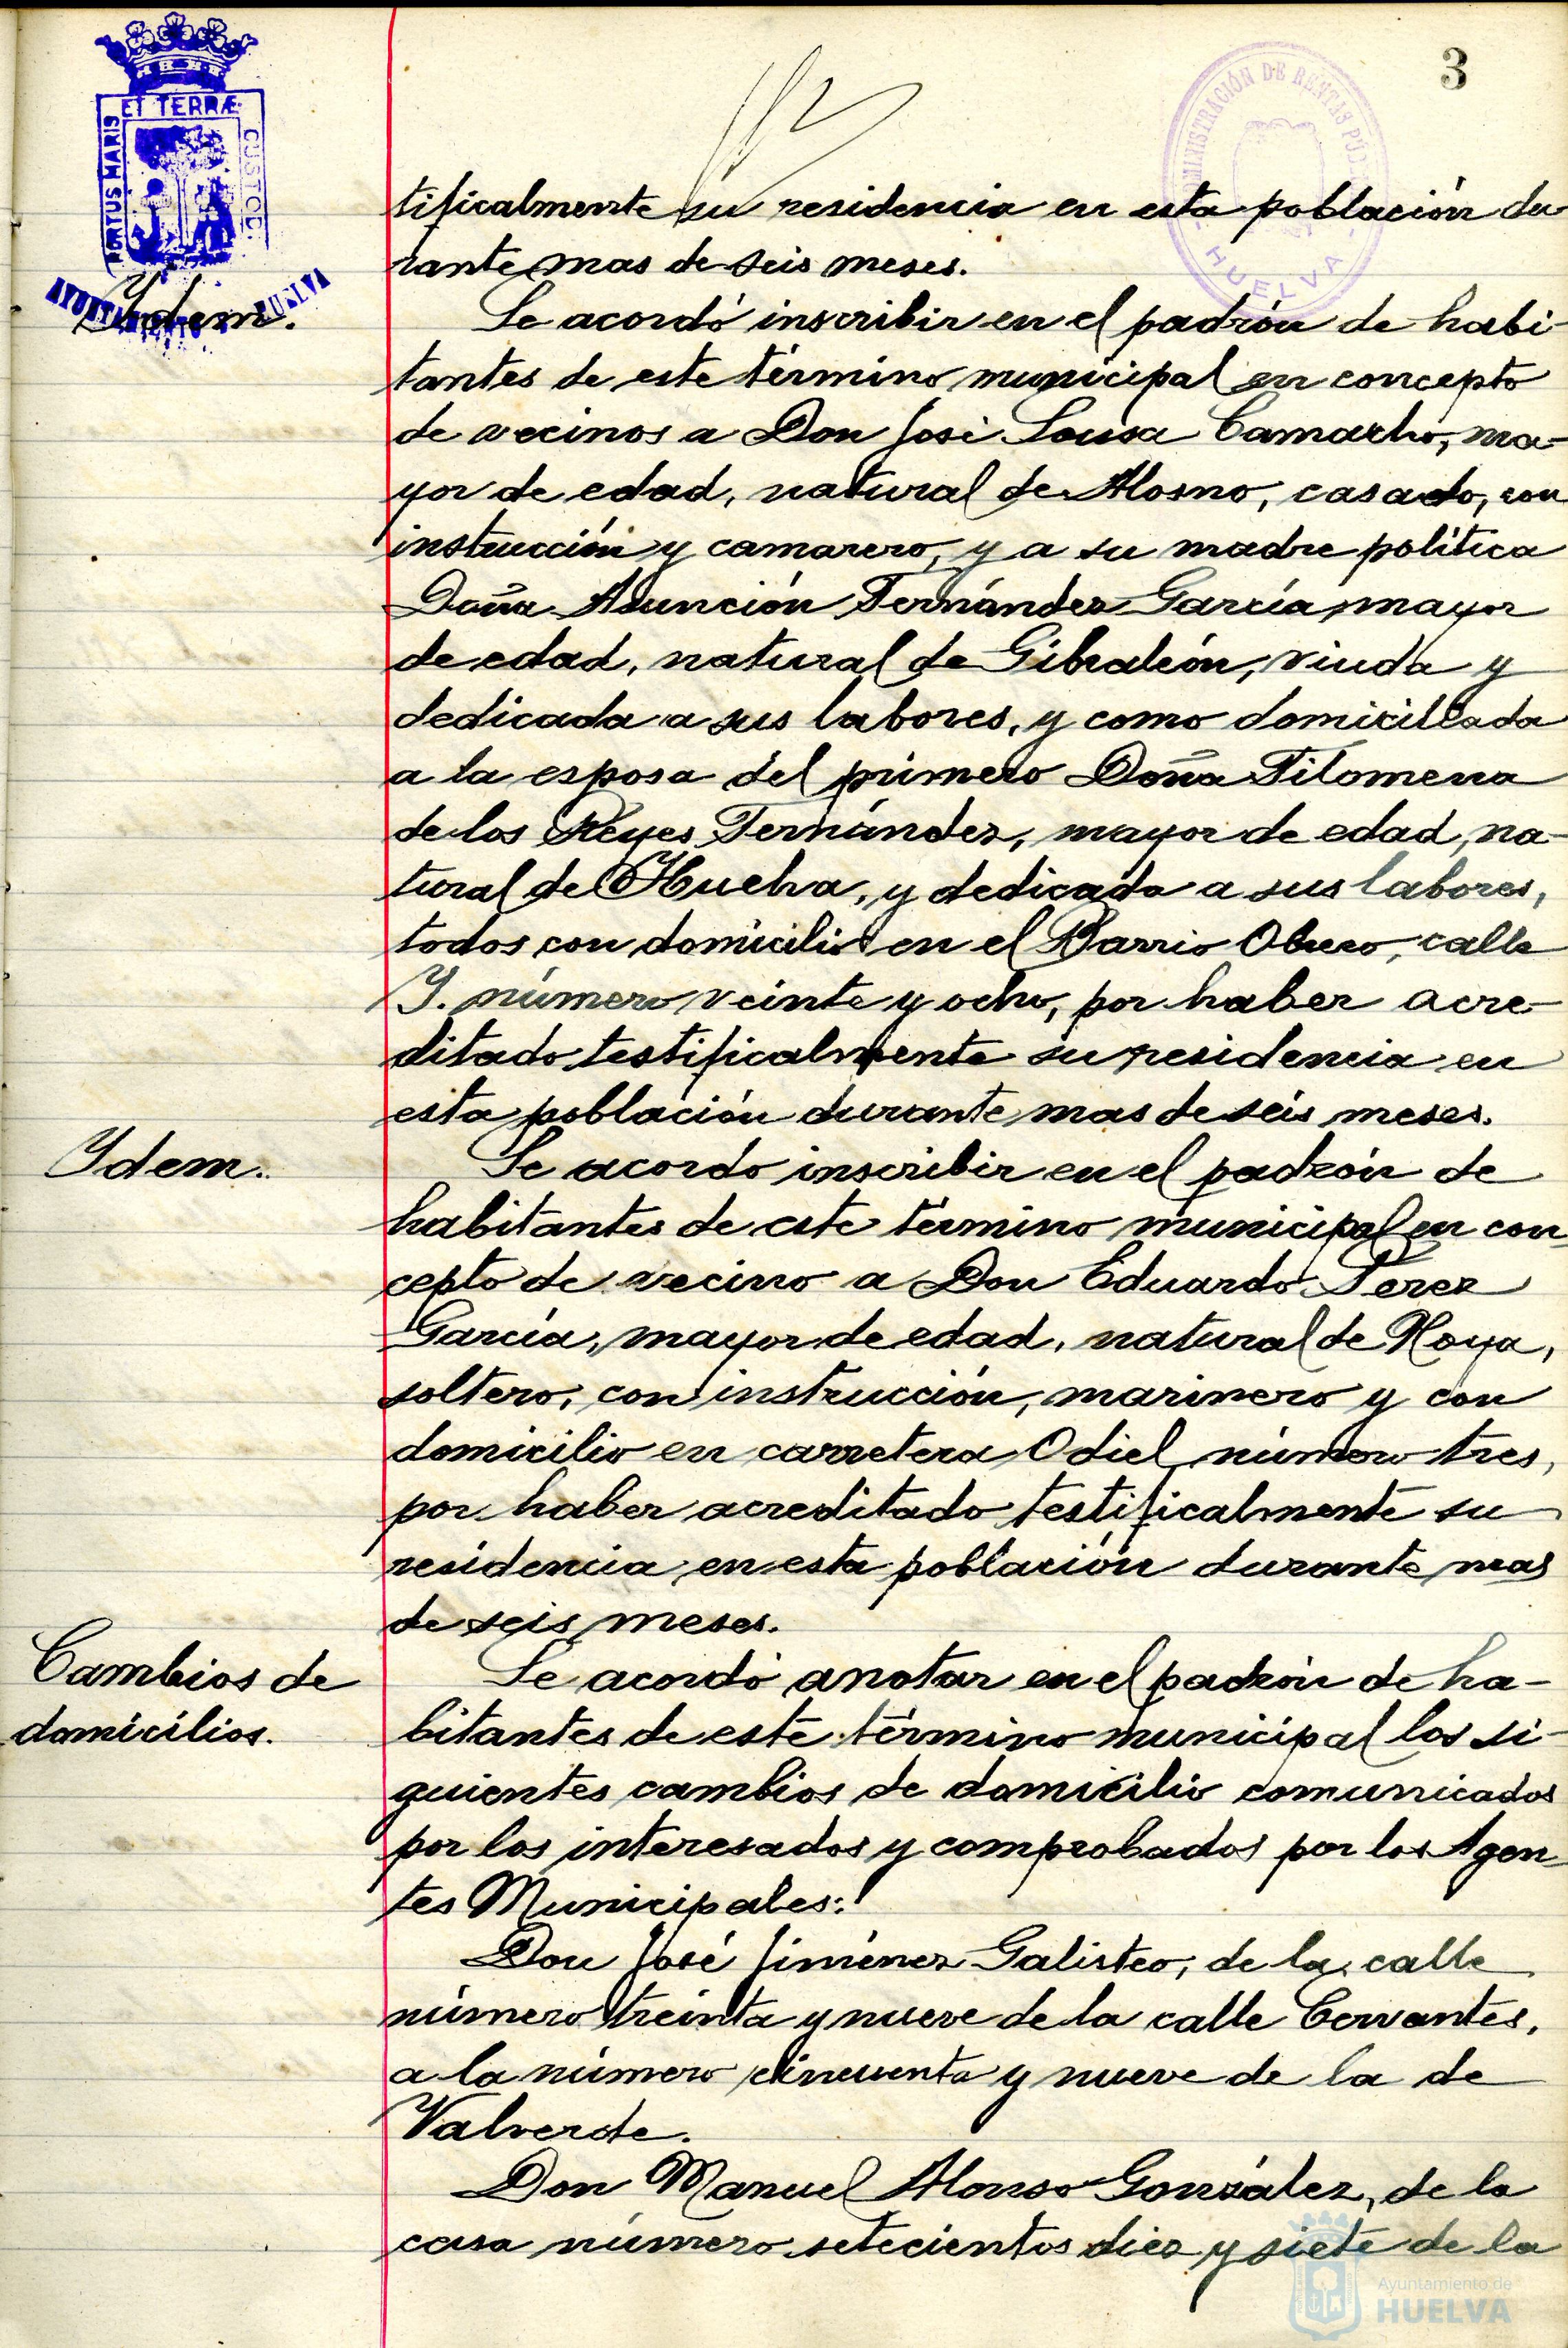 3
ET TERRÆ
PORTUS MARIS
CUSTOD
AYUNTAMIENTO HUELVA
ADMINISTRACIÓN DE RENTAS PÚB
- HUELVA -
tificalmente su residencia en esta población du
rante mas de seis meses.
Ydem.
Se acordó inscribir en el padrón de habi-
tantes de este término municipal en concepto
de vecinos a Don José Sousa Camacho, ma-
yor de edad, natural de Alosno, casado, con
instrucción y camarero, y a su madre politica
Doña Asunción Fernández García, mayor
de edad, natural de Gibraleón, viuda y
dedicada a sus labores, y como domiciliada
a la esposa del primero Doña Filomena
de los Reyes Fernández, mayor de edad, na-
tural de Huelva, y dedicada a sus labores,
todos con domicilio en el Barrio Obrero, calle
Y. número veinte y ocho, por haber acre-
ditado testificalmente su residencia en
esta población durante mas de seis meses.
Ydem.
Se acordo inscribir en el padrón de
habitantes de este término municipal en con
cepto de vecino a Don Eduardo Perez
García, mayor de edad, natural de Noya,
soltero, con instrucción, marinero y con
domicilio en carretera Odiel número tres,
por haber acreditado testificalmente su
residencia en esta población durante mas
de seis meses.
Cambios de
domicilios.
Se acordó anotar en el padrón de ha-
bitantes de este término municipal los si-
guientes cambios de domicilio comunicados
por los interesados y comprobados por los Agen-
tes Municipales:
Don José Jiménez Galisteo, de la calle
número treinta y nueve de la calle Cervantes,
a la número cincuenta y nueve de la de
Valverde.
Don Manuel Alonso González, de la
casa número setecientos diez y siete de la
Ayuntamiento de
HUELVA